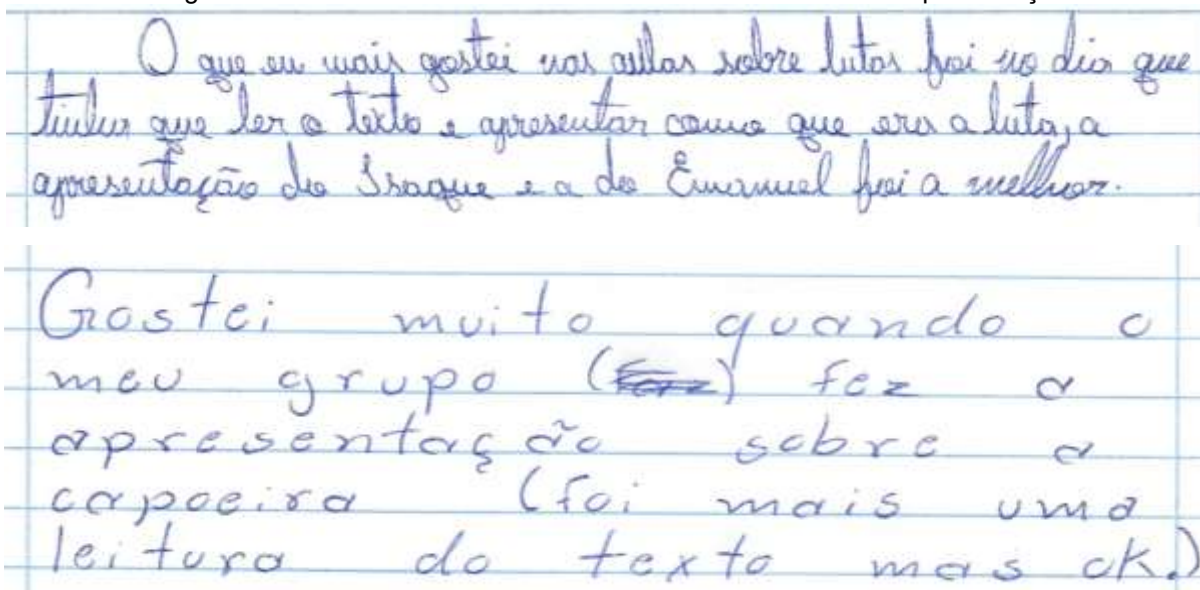 O que eu mais gostei nas aulas sobre lutas foi no dia que
tinha que ler o texto e apresentar como que era a luta, a
apresentação do Isaque e a do Emanuel foi a melhor.
Gostei muito quando o
meu grupo () fez a
apresentação sobre a
capoeira (foi mais uma
leitura do texto mas ok.)